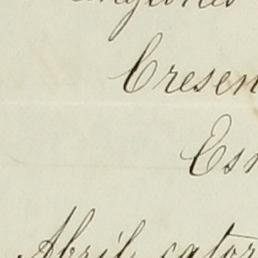 Cresen
Es
Abril cator